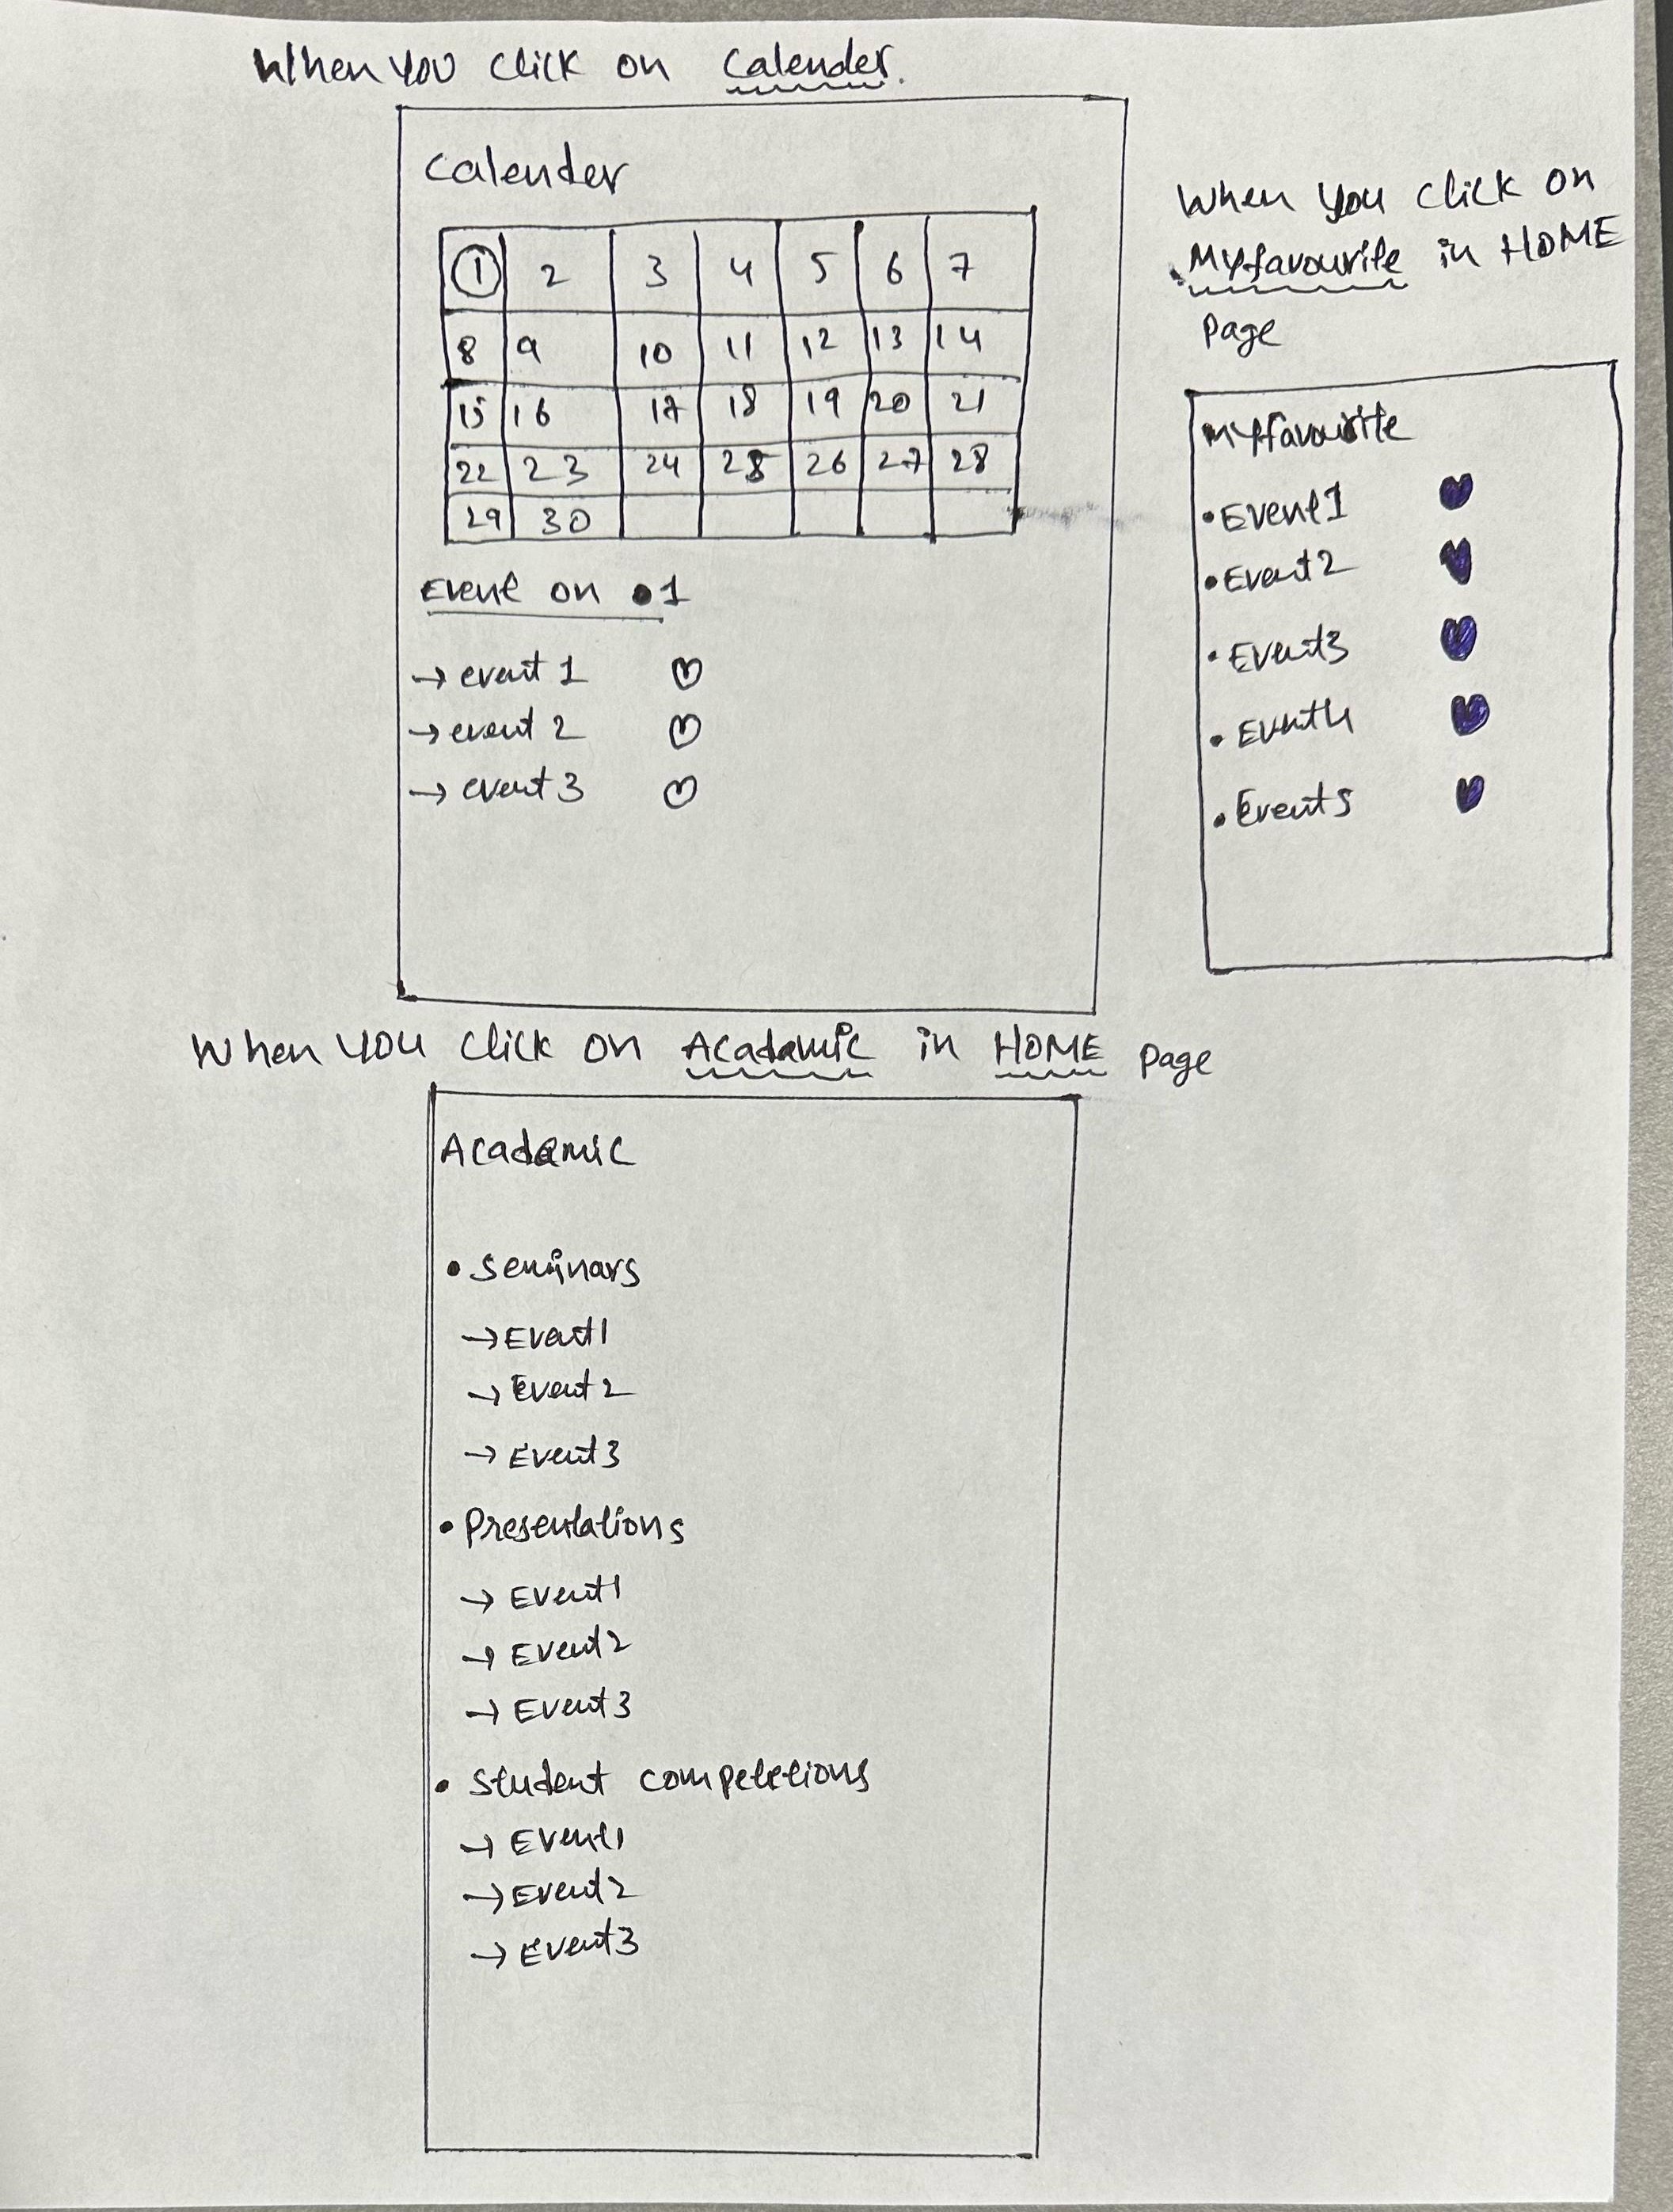 When you click on Calender.
Calender
1 2 3 4 5 6 7
8 9 10 11 12 13 14
15 16 17 18 19 20 21
22 23 24 25 26 27 28
29 30
Event on 1
→ event 1 ♡
→ event 2 ♡
→ event 3 ♡
When you click on
Myfavourite in HOME
page
Myfavourite
• Event1 ♥
• Event2 ♥
• Event3 ♥
• Event4 ♥
• Event5 ♥
When you click on Acadamic in HOME page
Academic
• Seminars
→ Event1
→ Event2
→ Event3
• Presentations
→ Event1
→ Event2
→ Event3
• Student competetions
→ Event1
→ Event2
→ Event3